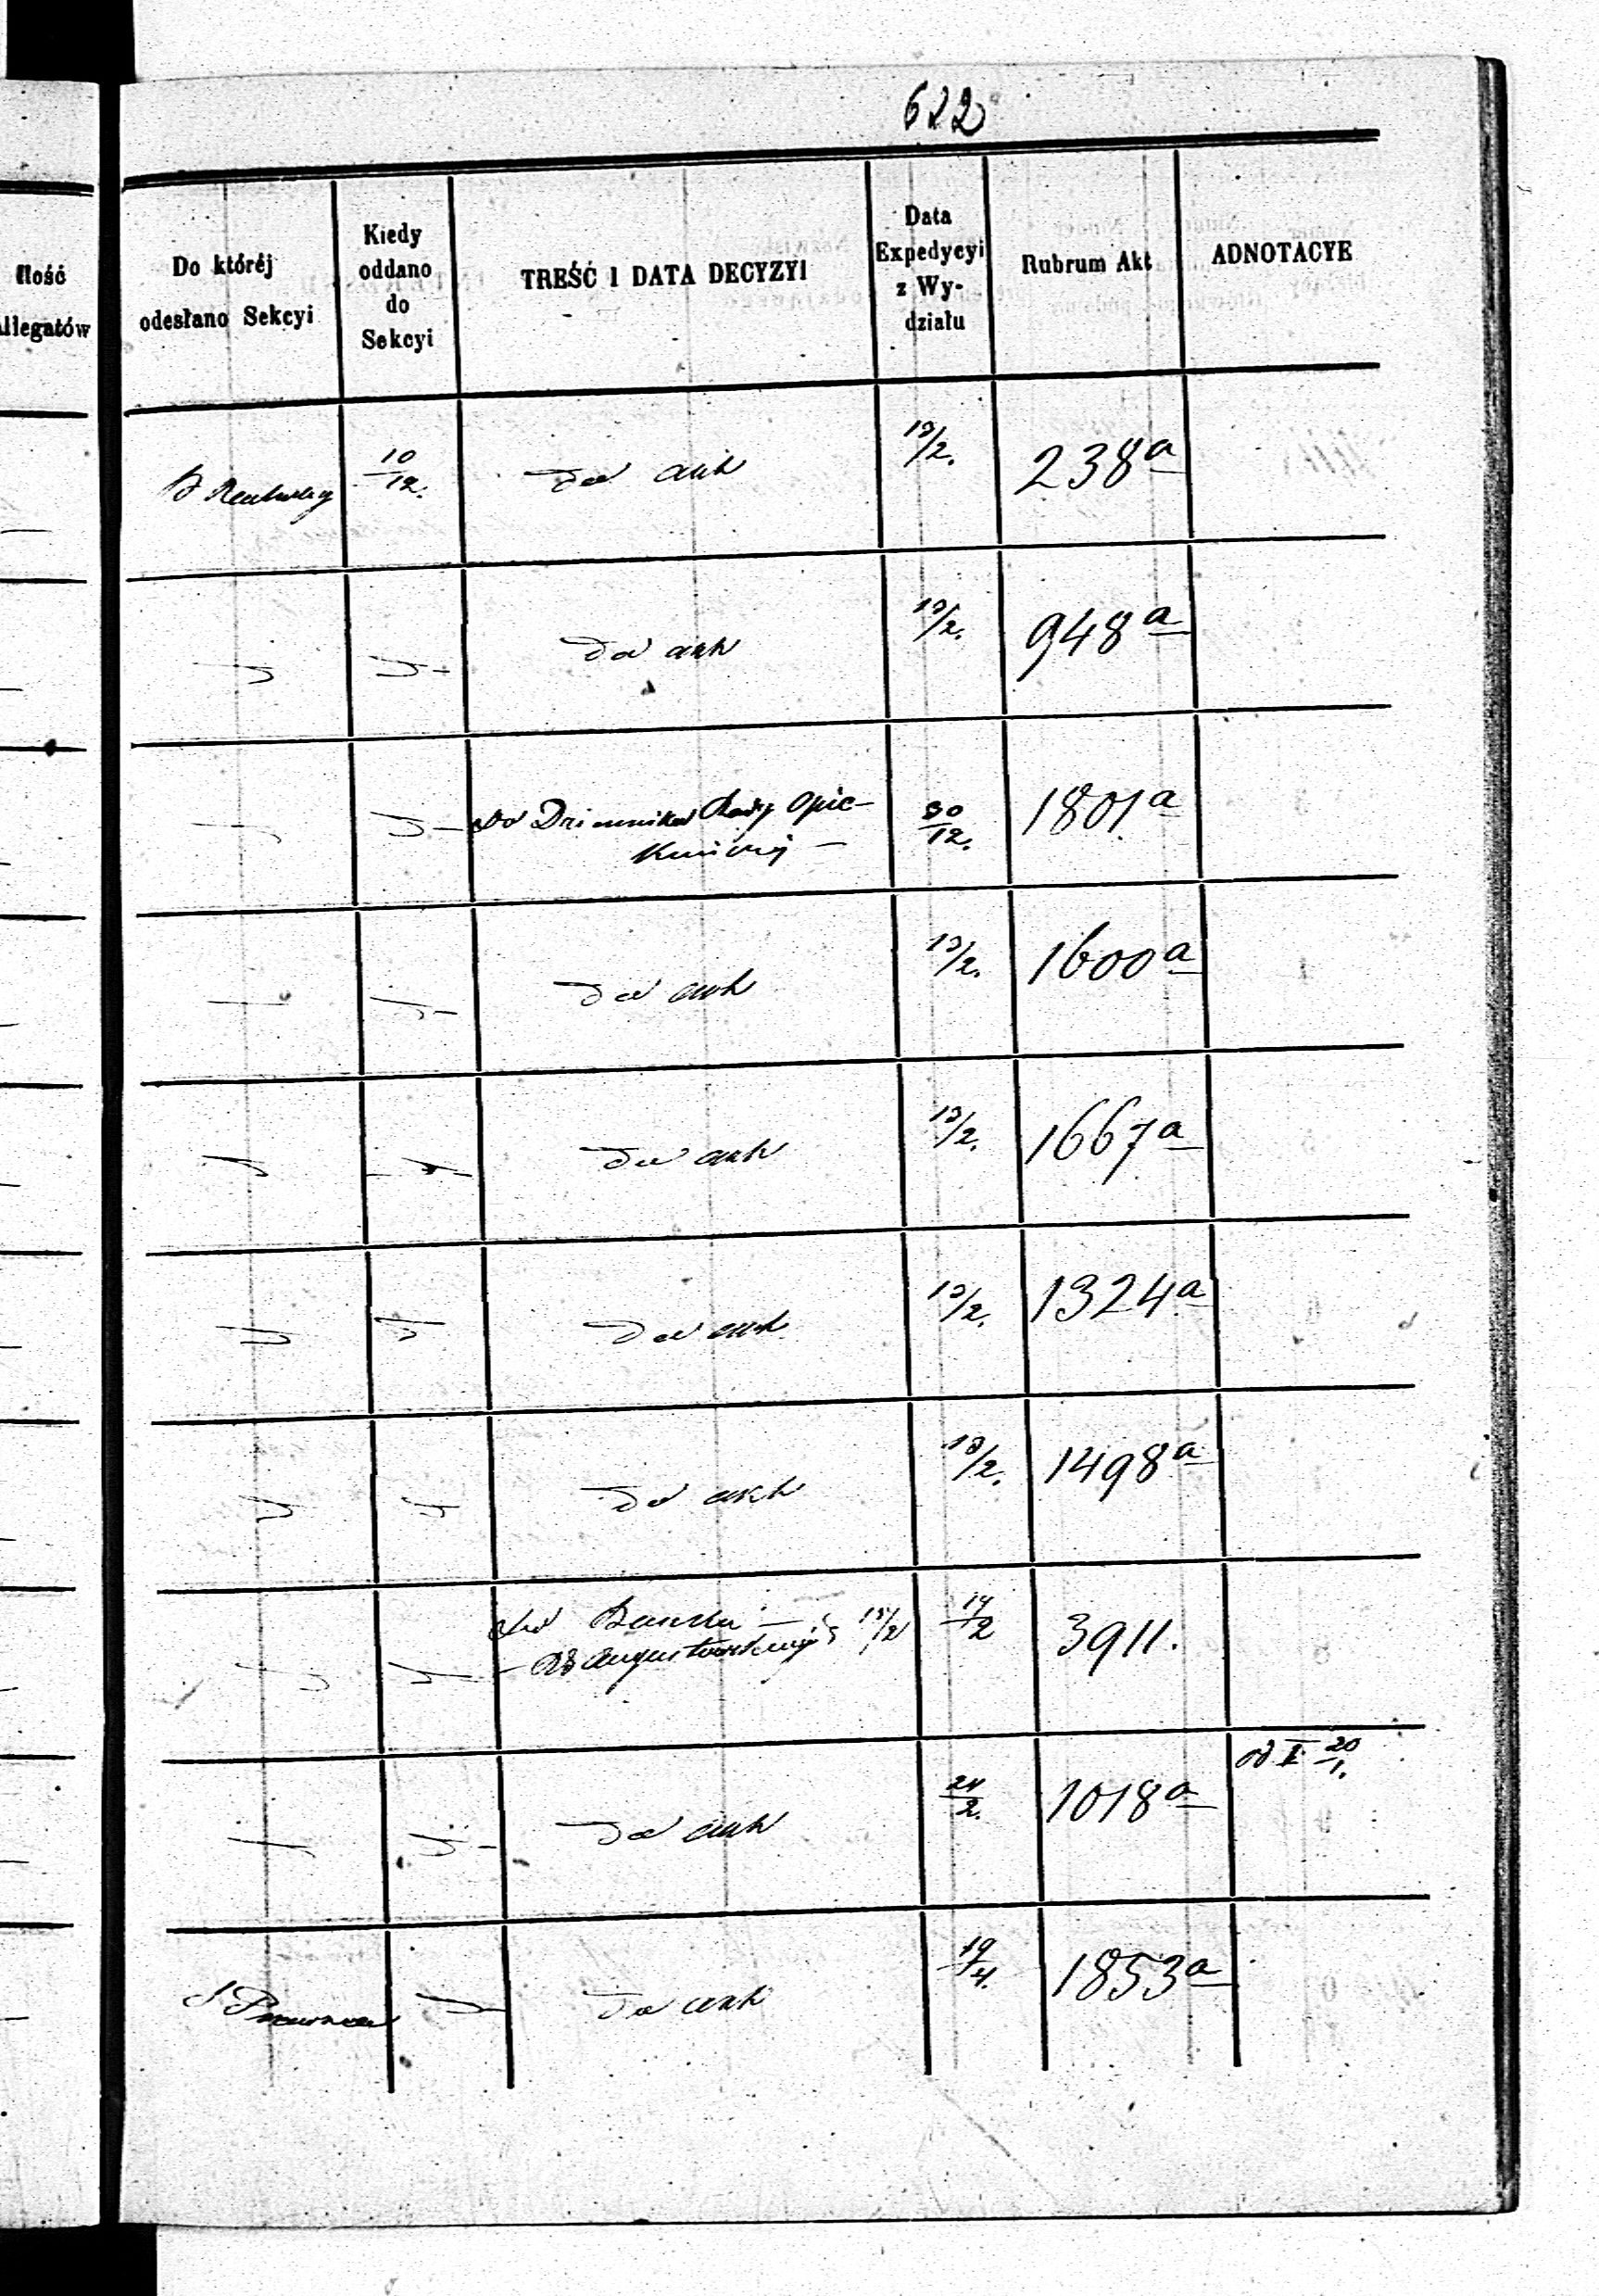 622
Ilość
Allegatów
Do któréj
odesłano Sekcyi
Kiedy
oddano
do
Sekcyi
TREŚĆ I DATA DECYZYI
Data
Expedycyi
z Wy-
działu
Rubrum Akt
ADNOTACYE
10/12.
do akt
13/2.
238a
do akt
13/2.
948a
do Dziennika Rady Opie-
kuńczej —
30/12.
1801a
do akt
13/2.
1600a
do akt
13/2.
1667a
do akt
13/2.
1324a
do akt
13/2.
1498a
do Banku —
Augustowskiej
13/2
14/2
3911.
do akt
24/2.
1018a
od I 20/1.
do akt
19/4.
1853a